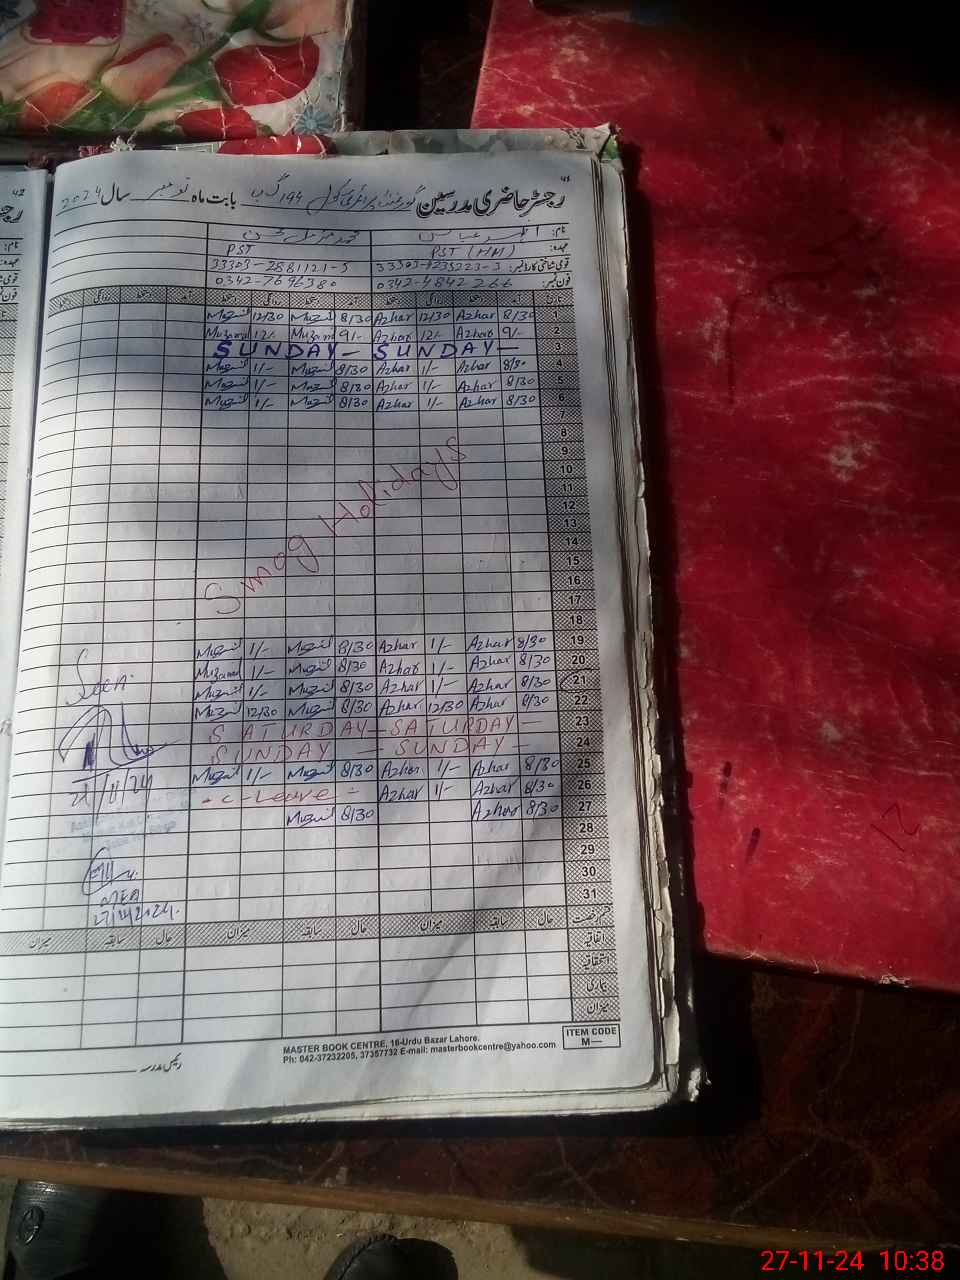 رجسٹر حاضری مدرسین گورنمنٹ پرائمری سکول 194 گ ب بابت ماہ نومبر سال 2024
نام: اظہر عباس محمد مزمل
عہدہ: PST (HM) PST
قومی شناختی کارڈ نمبر: 33303-2881121-5
فون نمبر: 0342-4842266 0342-7696380
تاریخ آمد دستخط روانگی دستخط آمد دستخط روانگی دستخط آمد دستخط روانگی دستخط
Muzamil 12/30 Muzamil 8/30 Azhar 12/30 Azhar 8/30 1
Muzamil 12/- Muzamil 9/- Azhar 12/- Azhar 9/- 2
SUNDAY — SUNDAY — 3
Muzamil 1/- Muzamil 8/30 Azhar 1/- Azhar 8/30 4
Muzamil 1/- Muzamil 8/30 Azhar 1/- Azhar 8/30 5
Muzamil 1/- Muzamil 8/30 Azhar 1/- Azhar 8/30 6
7
8
9
10
11
12
13
14
15
16
17
18
Smog Holidays
Muzamil 1/- Muzamil 8/30 Azhar 1/- Azhar 8/30 19
Muzamil 1/- Muzamil 8/30 Azhar 1/- Azhar 8/30 20
Muzamil 1/- Muzamil 8/30 Azhar 1/- Azhar 8/30 21
Muzamil 12/30 Muzamil 8/30 Azhar 12/30 Azhar 8/30 22
SATURDAY — SATURDAY — 23
SUNDAY — SUNDAY — 24
Muzamil 1/- Muzamil 8/30 Azhar 1/- Azhar 8/30 25
- C-Leave - Azhar 1/- Azhar 8/30 26
Muzamil 8/30 Azhar 8/30 27
28
29
30
31
Seen
21/11/24
MEA
27/11/2024.
قسم رخصت حال سابقہ میزان حال سابقہ میزان حال سابقہ میزان
اتفاقیہ
استحقاقیہ
بیماری
میزان
MASTER BOOK CENTRE, 16-Urdu Bazar Lahore.
Ph: 042-37232205, 37357732 E-mail: masterbookcentre@yahoo.com
ITEM CODE
M—
رئیس مدرسہ
12
27-11-24 10:38